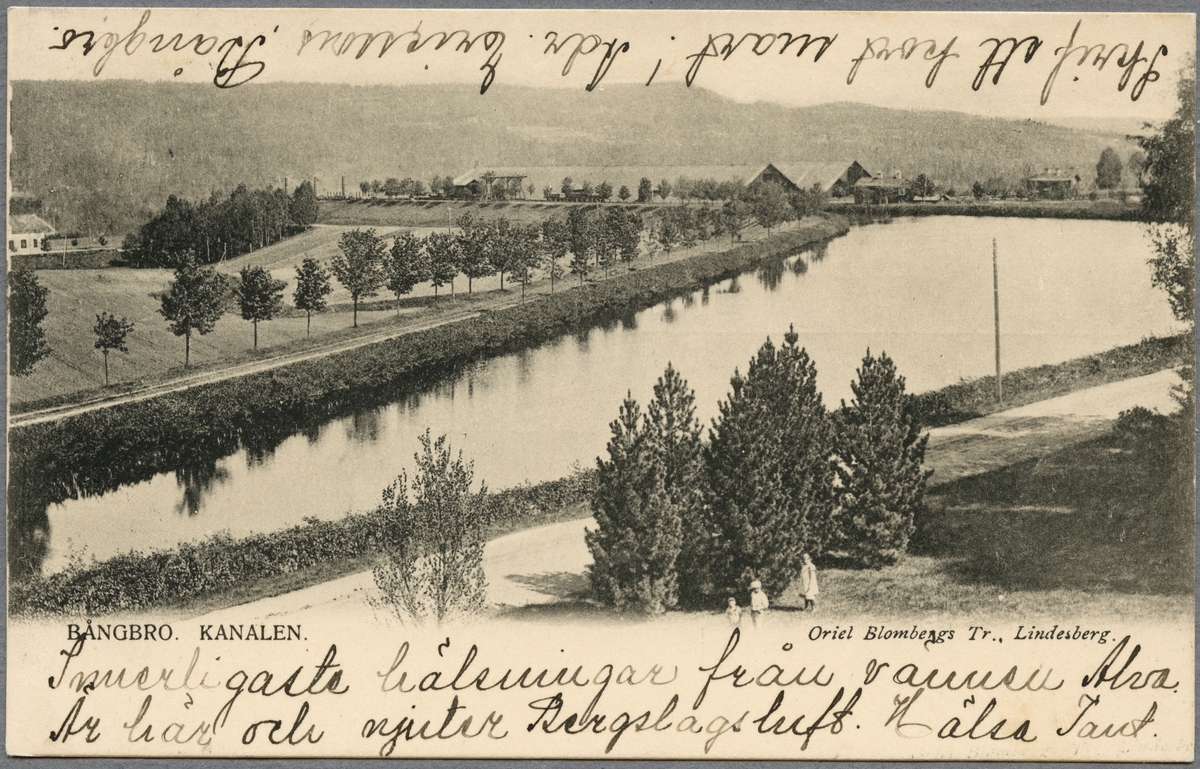 Skrif ett kort snart! Adr. Erixons, Bångbro.
BÅNGBRO. KANALEN.
Oriel Blombergs Tr., Lindesberg.
Innerligaste hälsningar från vännen Alva.
Är här och njuter Bergslagsluft. Hälsa Tant.